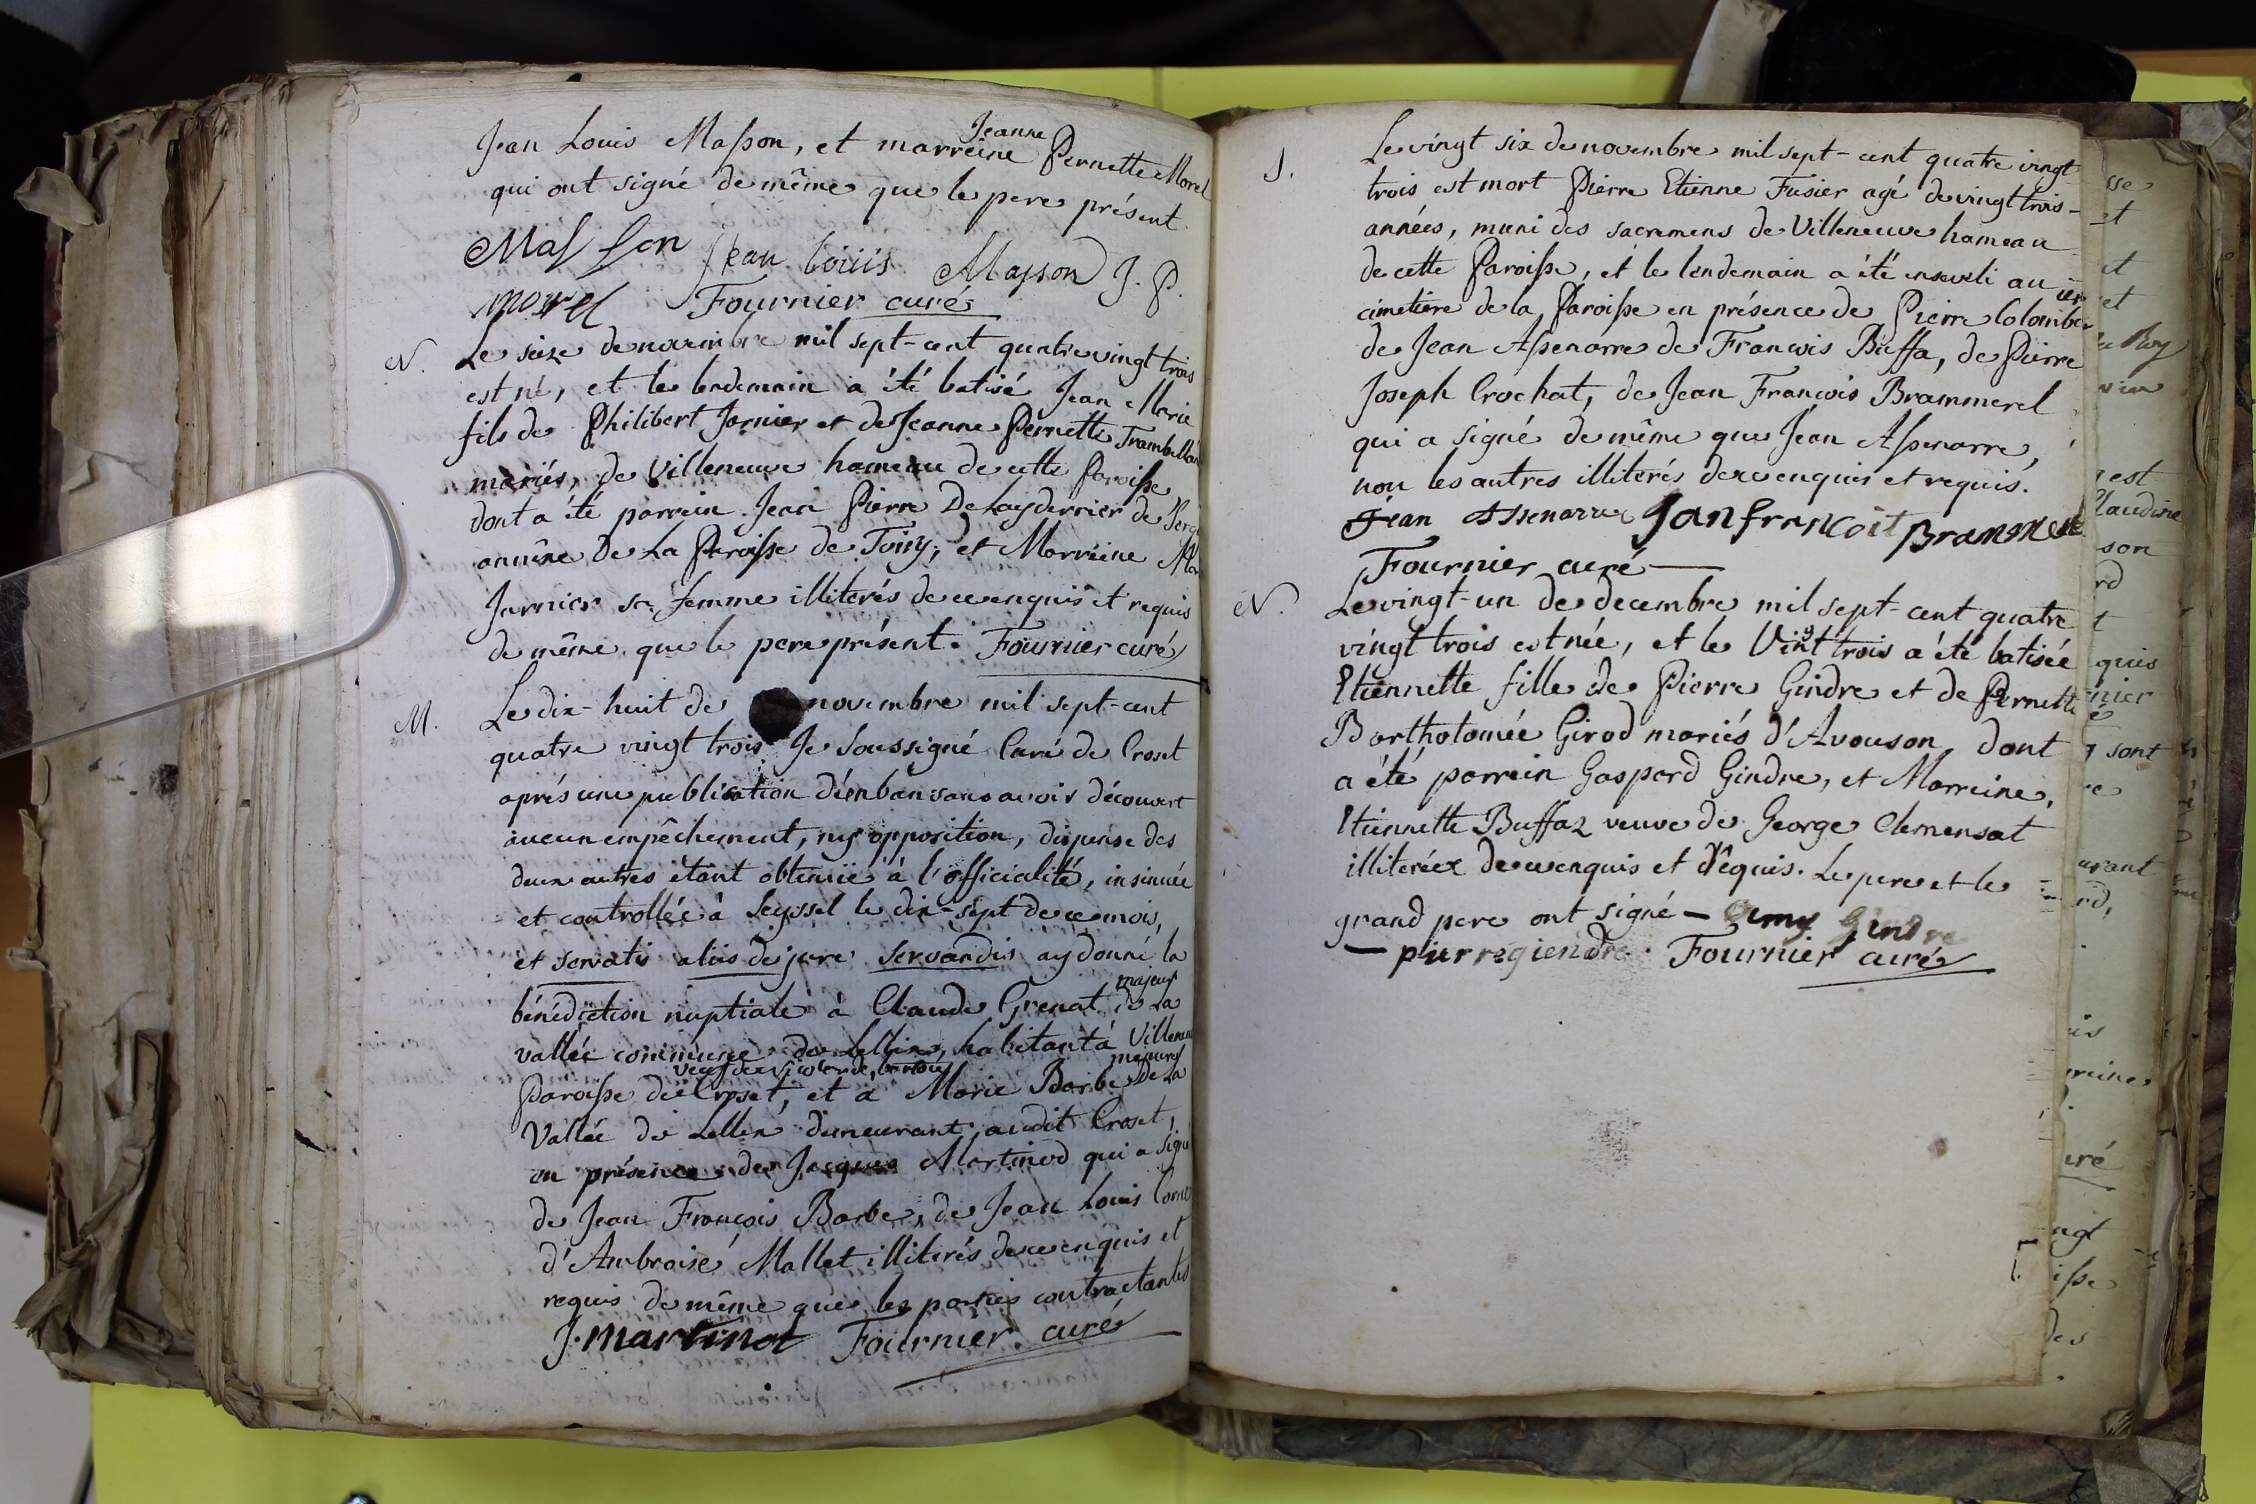 Jean Louis Masson, et marreine Jeanne Pernette Morel
qui ont signé de même que le pere présent.
Masson Jean loüis Masson J. P.
morel Fournier curé
N. Le seize de novembre mil sept-cent quatre vingt trois
est né, et le lendemain a été batisé Jean Marie
fils de Philibert Jarnier et de Jeanne Pernette
mariés, de Villeneuve hameau de cette Paroisse
dont a été parrein Jean Pierre Delayderrier de
annêne de La Paroisse de Toiry, et Marreine
Jarnier sa femme illiterés de ce enquis et requis
de même que le pere présent. Fournier curé
M. Le dix-huit de novembre mil sept-cent
quatre vingt trois Je Soussigné Curé de Croset
aprés une publication d'un ban sans avoir découvert
aucun empêchement, ny opposition, dispense des
deux autres étant obtenüe à l'officialité, insinuée
et controllée à Seyssel le dix-sept de ce mois,
et servatis aliis de jure servandis ay donné la
bénédiction nuptiale à Claude Grenat majeur de La
vallée commune de Lellex, habitant à Villeneuve
Paroisse de Croset, veuf de et a Marie Barbe majeure De La
Vallée de Lellex demeurant audit Croset,
en présence de Jacques Martinod qui a signé
de Jean François Barbe, de Jean Louis
d'Ambroise Mallet illiterés de ce enquis et
requis de même que les parties contractantes
J. martinot Fournier curé
S. Le vingt six de novembre mil sept-cent quatre vingt
trois est mort Pierre Etienne Fusier agé de vingt trois-
années, muni des sacremens de Villeneuve hameau
de cette Paroisse, et le lendemain a été enseveli au
cimetière de la Paroisse en présence de Pierre Colombier
de Jean Assenarre de François Buffa, de Pierre
Joseph Crochat, de Jean François Brammerel
qui a signé de même que Jean Assenarre,
non les autres illiterés de ce enquis et requis.
Jean Assenarre Jan francoit Brammerel
Fournier curé
N. Le vingt-un de decembre mil sept-cent quatre
vingt trois est née, et le Vingt trois a été batisée
Etiennette fille de Pierre Gindre et de Pernette
Bartholomée Girod mariés d'Avouson, dont
a été parrein Gaspard Gindre, et Marreine,
Etiennette Buffaz veuve de George Clemensat
illiterée de ce enquis et requis. Le pere et le
grand pere ont signé - Gindre
- pierre giendre Fournier curé